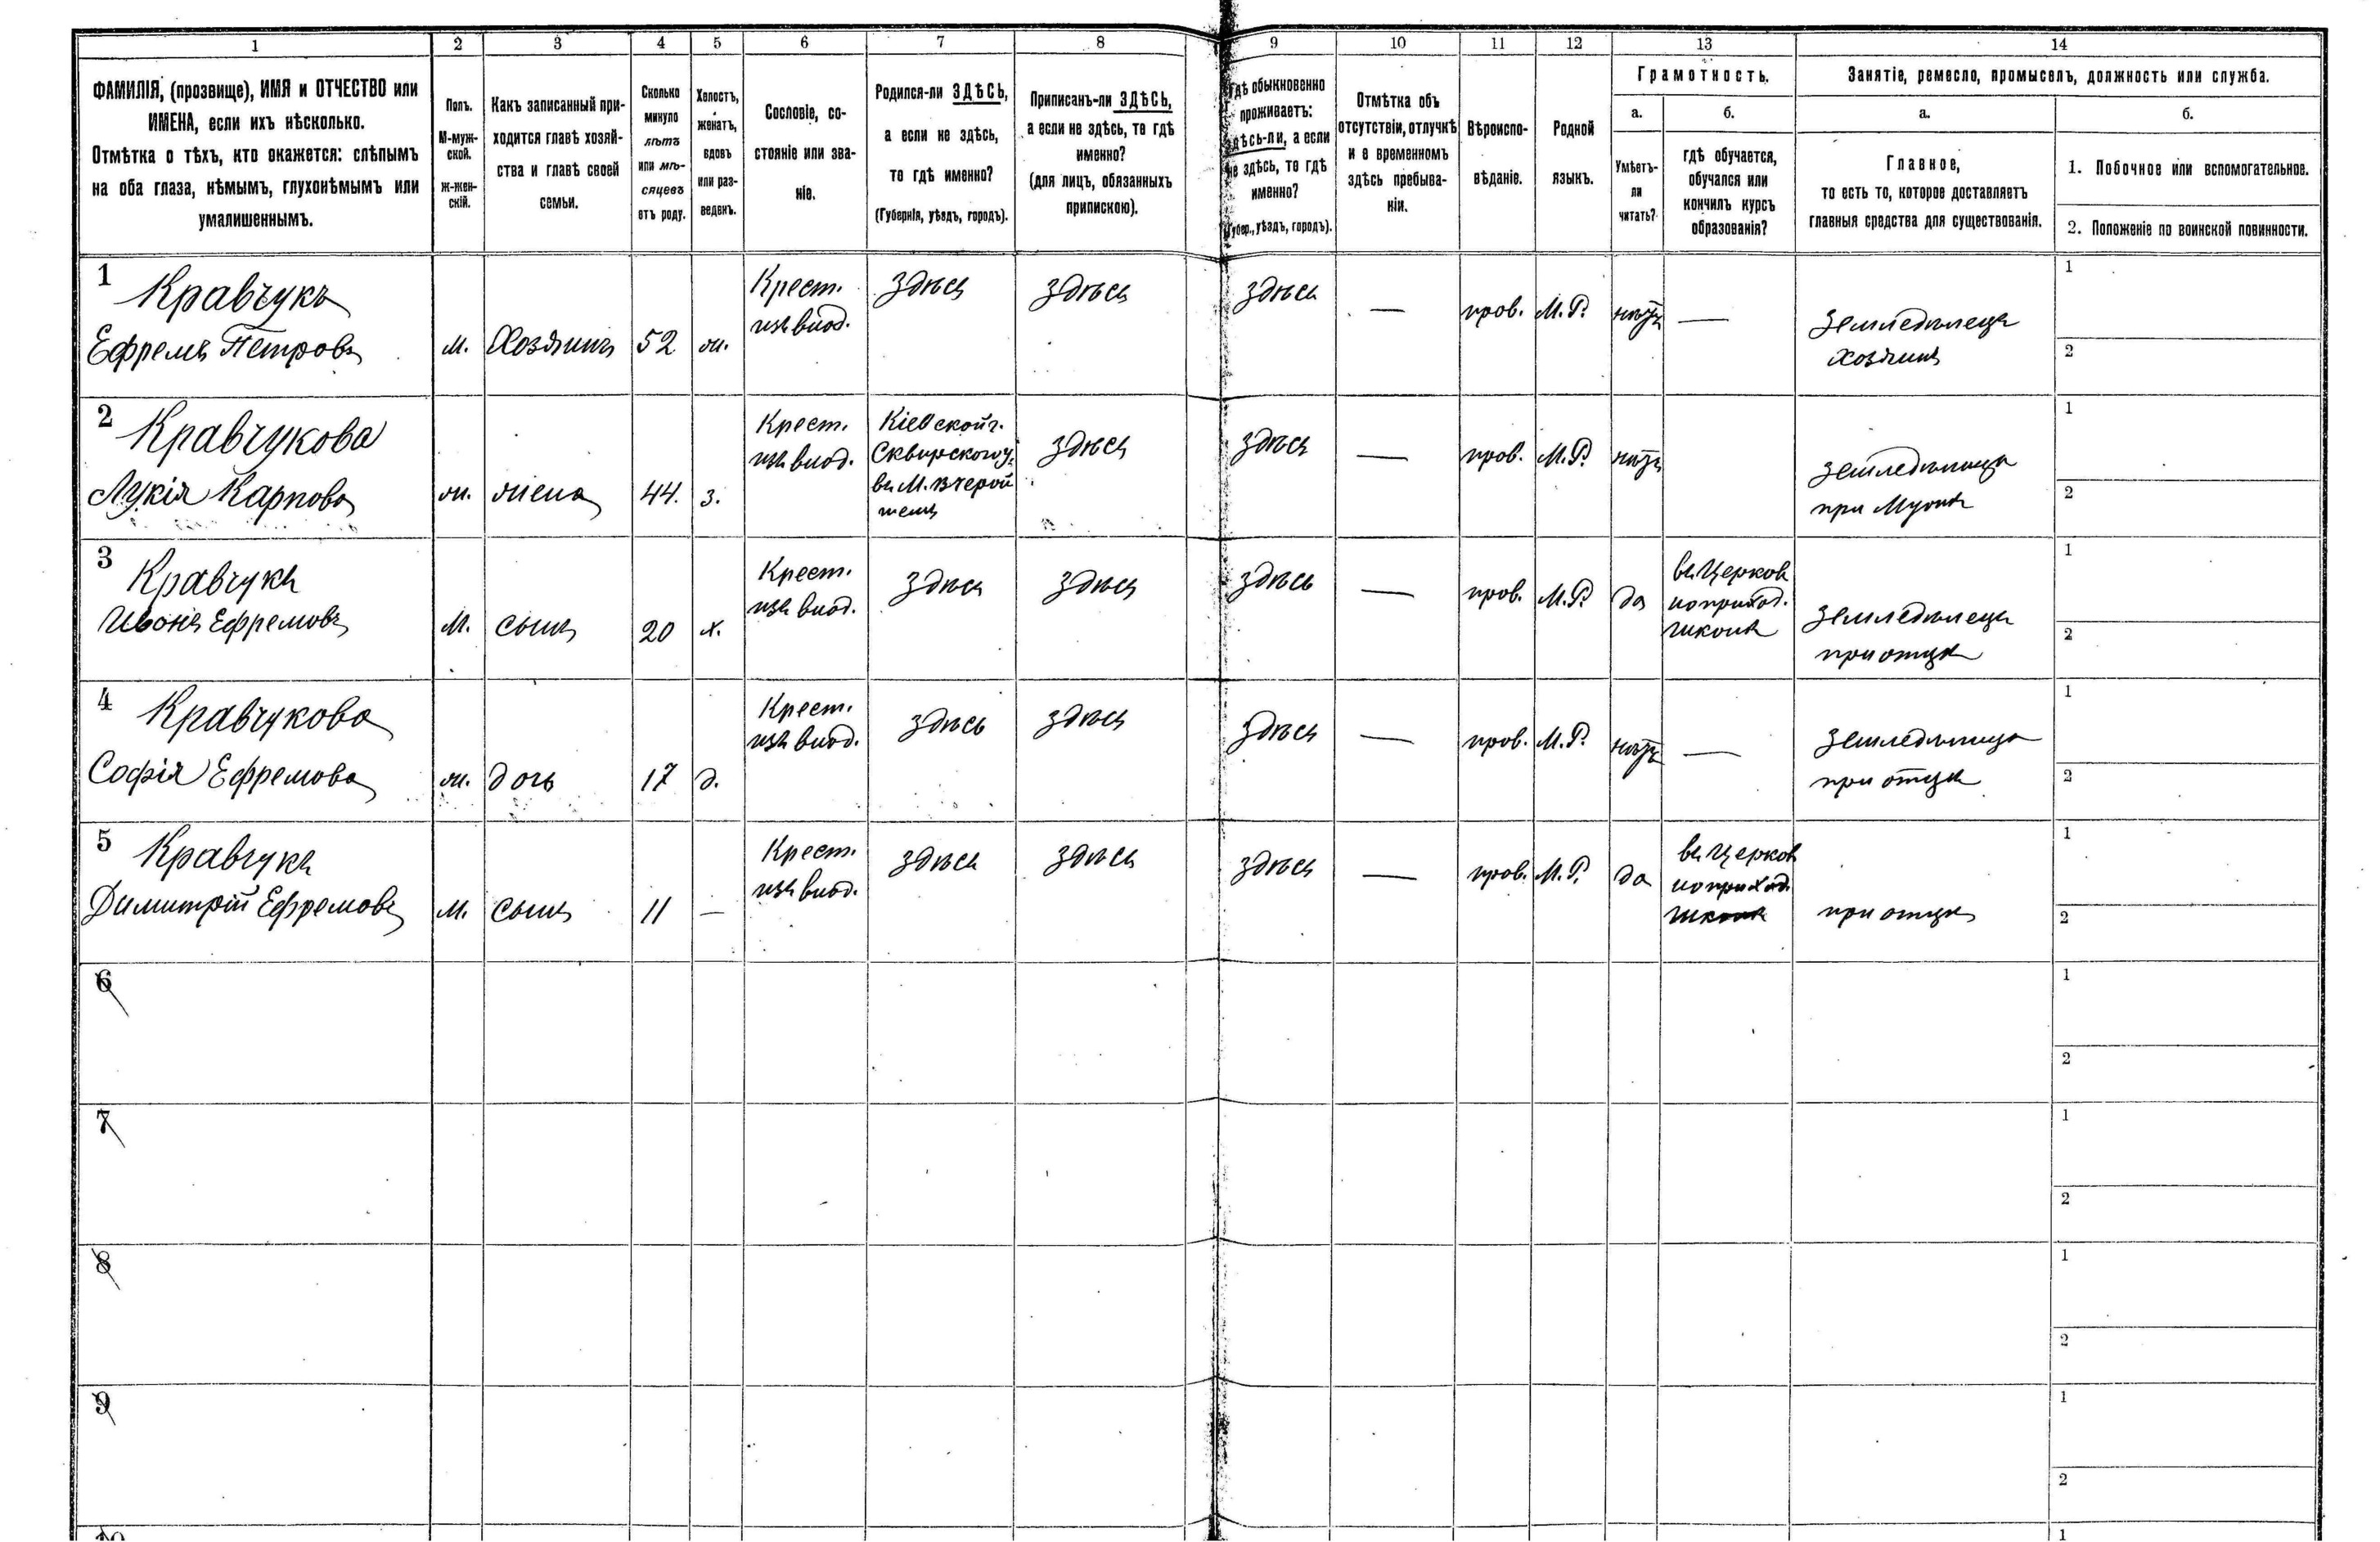 1 2 3 4 5 6 7 8 9 10 11 12 13 14
ФАМИЛІЯ, (прозвище), ИМЯ и ОТЧЕСТВО или
ИМЕНА, если ихъ нѣсколько.
Отмѣтка о тѣхъ, кто окажется: слѣпымъ
на оба глаза, нѣмымъ, глухонѣмымъ или
умалишеннымъ.
Полъ.
М-муж-
ской.
ж-жен-
скій.
Какъ записанный при-
ходится главѣ хозяй-
ства и главѣ своей
семьи.
Сколько
минуло
лѣтъ
или мѣ-
сяцевъ
отъ роду.
Холостъ,
женатъ,
вдовъ
или раз-
веденъ.
Сословіе, со-
стояніе или зва-
ніе.
Родился-ли ЗДѢСЬ,
а если не здѣсь,
то гдѣ именно?
(Губернія, уѣздъ, городъ).
Приписанъ-ли ЗДѢСЬ,
а если не здѣсь, то гдѣ
именно?
(для лицъ, обязанныхъ
припискою).
Гдѣ обыкновенно
проживаетъ:
здѣсь-ли, а если
не здѣсь, то гдѣ
именно?
(Губер., уѣздъ, городъ).
Отмѣтка объ
отсутствіи, отлучкѣ
и о временномъ
здѣсь пребыва-
ніи.
Вѣроиспо-
вѣданіе.
Родной
языкъ.
Грамотность.
а.
Умѣетъ-
ли
читать?
б.
гдѣ обучается,
обучался или
кончилъ курсъ
образованія?
Занятіе, ремесло, промыселъ, должность или служба.
а.
Главное,
то есть то, которое доставляетъ
главныя средства для существованія.
б.
1. Побочное или вспомогательное.
2. Положеніе по воинской повинности.
1
Кравчукъ
Ефремъ Петровъ
м.
Хозяинъ
52
ж.
Крест.
изъ влад.
здѣсь
здѣсь
здѣсь
—
прав.
М.Р.
нѣтъ
—
Земледѣлецъ
хозяинъ
1
2
2
Кравчукова
Лукія Карпова
ж.
жена
44.
з.
Крест.
изъ влад.
Кіевской г.
Сквирского у.
въ М. Вчерой
шемъ
здѣсь
здѣсь
—
прав.
М.Р.
нѣтъ
земледѣлица
при Мужѣ
1
2
3
Кравчукъ
Иванъ Ефремовъ
М.
сынъ
20
х.
Крест.
изъ влад.
здѣсь
здѣсь
здѣсь
—
прав.
М.Р.
да
въ Церков
но приход.
школѣ
земледѣлецъ
при отцѣ
1
2
4
Кравчукова
Софія Ефремова
ж.
дочь
17
д.
Крест.
изъ влад.
здѣсь
здѣсь
здѣсь
—
прав.
М.Р.
нѣтъ
—
земледѣлица
при отцѣ
1
2
5
Кравчукъ
Димитрій Ефремовъ
М.
сынъ
11
—
Крест.
изъ влад.
здѣсь
здѣсь
здѣсь
—
прав.
М.Р.
да
въ Церков
но приход.
школѣ
при отцѣ
1
2
6
1
2
7
1
2
8
1
2
9
1
2
1